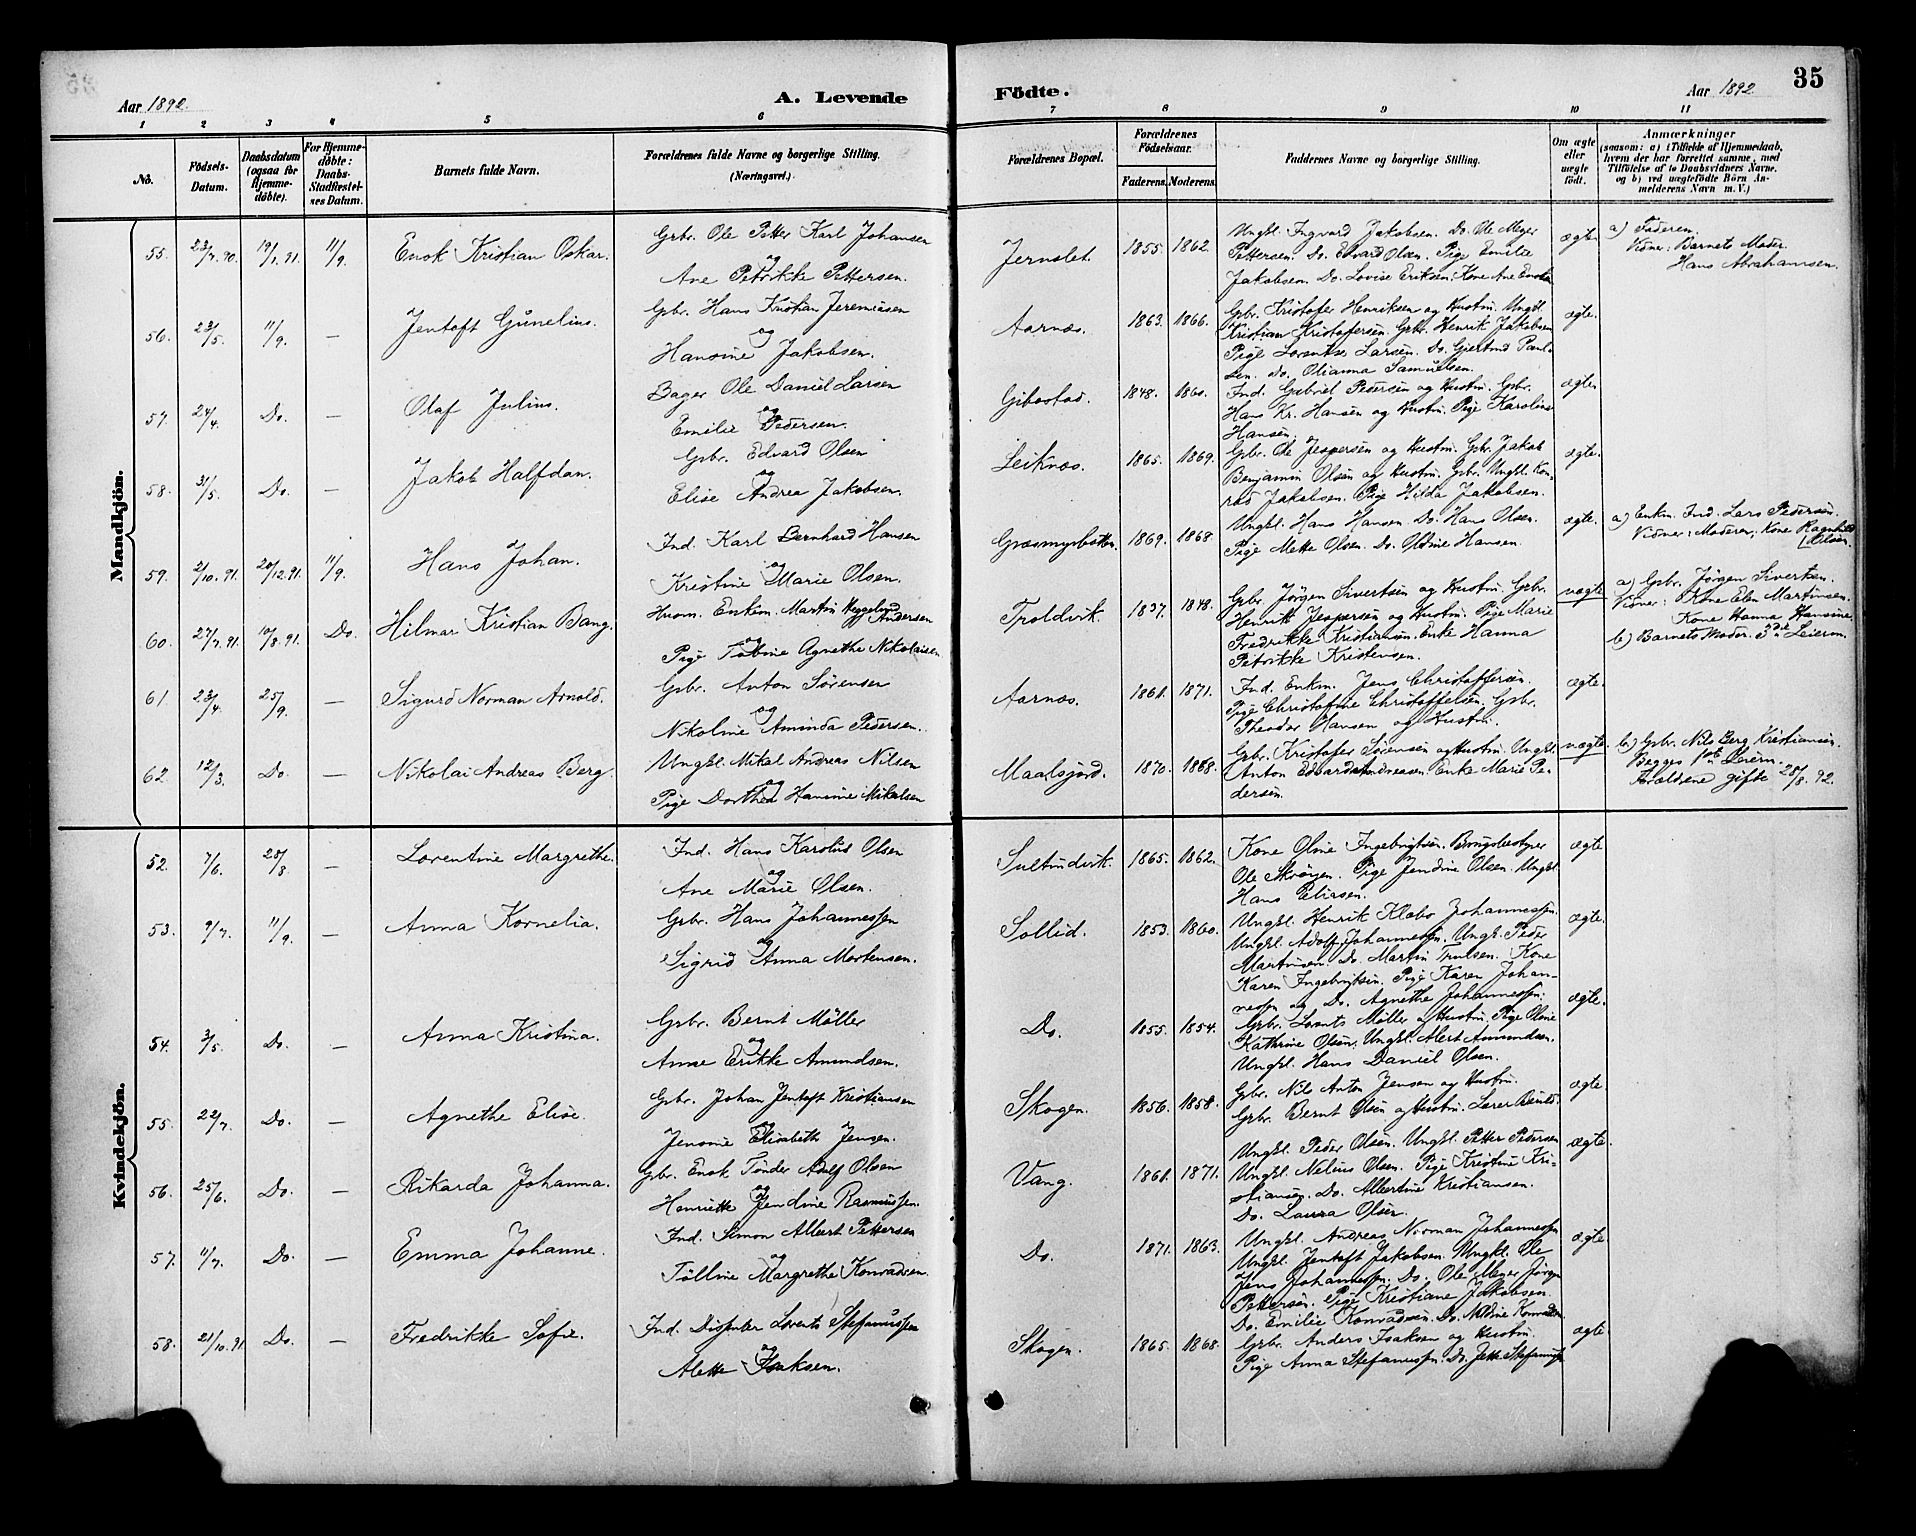 35
Aar 1892.
A. Levende Födte.
Aar 1892
1 2 3 4 5 6 7 8 9 10 11
No. Födsels-Datum. Daabsdatum (ogsaa for Hjemmedöbte). For Hjemmedöbte: Daabs-Stadfæstelses Datum. Barnets fulde Navn. Forældrenes fulde Navne og borgerlige Stilling. (Næringsvei.) Forældrenes Bopæl. Forældrenes Födselsaar. Faderens. Moderens. Faddernes Navne og borgerlige Stilling. Om ægte eller uægte födt. Anmærkninger (saasom: a) i Tilfælde af Hjemmedaab, hvem der har forrettet samme, med Tilföielse af to Daabsvidners Navne. og b) ved uægtefödte Börn Anmelderens Navn m. V.)
Mandkjön.
55. 23/7.90. 19/1.91. 11/9. Enok Kristian Oskar. Gsbr. Ole Petter Karl Johansen og Ane Petrikke Pettersen. Jernslet. 1855. 1862. Ungkl. Ingvard Jakobsen. Do. Ole Meyer Pettersen. Do. Edvard Olsen. Pige Emilie Jakobsen. Do. Lovise Eriksen. Kone Ane ægte a) Faderen. Vidner: Barnets Moder. Hans Abrahamsen.
56. 23/5. 11/9. — Jentoft Gunelius. Gsbr. Hans Kristian Jeremiasen og Hansine Jakobsen. Aarnæs. 1863. 1866. Gsbr. Kristofer Henriksen og Hustru. Ungkl. Kristian Kristofersen. Gsbr. Henrik Jakobsen Pige Lorentse Larsen. Do. Gjertrud Paulsen. do. Olianna Samuelsen. ægte.
57. 24/4. Do. — Olaf Julius. Bager Ole Daniel Larsen og Emilie Pedersen. Gibostad. 1848. 1860. Ind. Gabriel Pedersen og Hustru. Gsbr. Hans Kr. Hansen og Hustru. Pige Karoline Hansen. ægte
58. 31/5. Do. — Jakob Halfdan. Gsbr. Edvard Olsen og Elise Andrea Jakobsen. Leiknæs. 1865. 1869. Gsbr. Ole Jespersen og Hustru. Gsbr. Jakob Benjamin Olsen og Hustru. Gsbr. Ungkl. Konrad Jakobsen. Pige Hilda Jakobsen. ægte.
59. 2/10.91. 20/12.91. 11/9. Hans Johan. Ind. Karl Bernhard Hansen og Kristine Marie Olsen. Græsmyrbotten. 1869. 1868. Ungkl. Hans Hansen. Do. Hans Olsen. Pige Mette Olsen. Do. Oldine Hansen. ægte. a) Enkm. Ind. Lars Pedersen. Vidner: Moderen, Kone Ragnhild Olsen.
60. 27/7.91. 10/8.91. Do. Hilmar Kristian Bang. Husm. Enkm. Martin Heggelund Andersen og Pige Tobine Agnethe Nikolaisen Troldvik. 1837. 1848. Gsbr. Jörgen Sivertsen og Hustru. Gsbr. Henrik Jespersen og Hustru. Pige Marie Fredrikke Kristiansen. Enke Hanna Petrikke Kristensen. uægte a) Gsbr. Jörgen Sivertsen. Vidner: Kone Elen Martinsen. Kone Hanna Hansine. b) Barnets Moder. 3die Leierm.
61 23/4. 25/9. — Sigurd Norman Arnold. Gsbr. Anton Sörensen og Nikoline Aminda Pedersen. Aarnæs. 1861. 1871. Ind. Enkm. Jens Christoffersen. Pige Christofine Christoffelsen. Gsbr. Theodor Hansen og Hustru. ægte.
62. 12/3. Do. — Nikolai Andreas Berg. Ungkl. Mikal Andreas Nilsen og Pige Dorthea Hansine Mikalsen Maalsjord. 1870. 1868. Gsbr. Kristofer Sörensen og Hustru. Ungkl. Anton Edvard Andreasen. Enke Marie Pedersen. uægte b) Gsbr. Nils Berg Kristiansen. Begges 1ste Leierm. Forældrene gifte 28/8.92.
Kvindekjön.
52. 7/6. 28/8 — Lorentine Margrethe. Ind. Hans Karolus Olsen og Ane Marie Olsen. Sultindvik. 1865. 1862. Kone Oline Ingebrigtsen. Brugsbestyrer Ole Skrögen. Pige Jendine Olsen. Ungkl. Hans Eliasen. ægte
53. 9/7. 11/9. — Anna Kornelia. Gsbr. Hans Johannessen og Sigrid Anna Mortensen. Sollid. 1853. 1860. Ungkl. Henrik Klabo Johannessen. Ungkl. Adolf Johannessen. Ungkl. Peder Martinsen. Do. Martin Trulsen. Kone Karen Ingebrigtsen. Pige Karen Johannessen og Do. Agnethe Johannessen. ægte.
54. 3/5. Do. — Anna Kristina. Gsbr. Bernt Möller og Anne Erikke Amundsen. Do. 1855. 1854. Gsbr. Lorents Möller og Hustru. Pige Oline Kathrine Olsen. Ungkl. Alert Amundsen. Ungkl. Hans Daniel Olsen. ægte.
55. 22/7. Do. — Agnethe Elise. Gsbr. Johan Jentoft Kristiansen og Jensine Elisabeth Jensen. Skogen. 1856. 1858. Gsbr. Nils Anton Jensen og Hustru. Gsbr. Bernt Olsen og Hustru. Lærer ægte
56. 25/6. Do. — Rikarda Johanna. Gsbr. Enok Tönder Adolf Olsen og Henriette Jendine Rasmussen. Vang. 1861. 1871. Ungkl. Peder Olsen. Ungkl. Petter Pedersen Ungkl. Nelius Olsen. Pige Kristine Kristiansen. Do. Albertine Kristiansen. Do. Laura Olsen. ægte.
57. 11/7. Do. — Emma Johanne. Ind. Simon Albert Pettersen og Tölline Margrethe Konradsen. Do. 1871. 1863. Ungkl. Andreas Norman Johannessen Ungkl. Jentoft Jakobsen. Ungkl. Ole Jens Johannessen. Do. Ole Meyer Jörgen Pettersen. Pige Kristiane Jakobsen. Do. Emilie Konradsen. Do. Konradsen. ægte
58. 21/10.91. Do. — Fredrikke Sofie. Ind. Disputer Lorents Stefanussen og Alette Isaksen. Skogen. 1865. 1868. Gsbr. Anders Isaksen og Hustru. Pige Anna Stefanussen. Do. Jette Stefanussen ægte